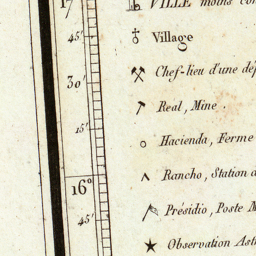 17
VILLE moins
45'
Village
30'
Chef-lieu d'une
Real, Mine.
15'
Hacienda, Ferme
Rancho, Station
16°
Présidio, Poste
45'
Observation